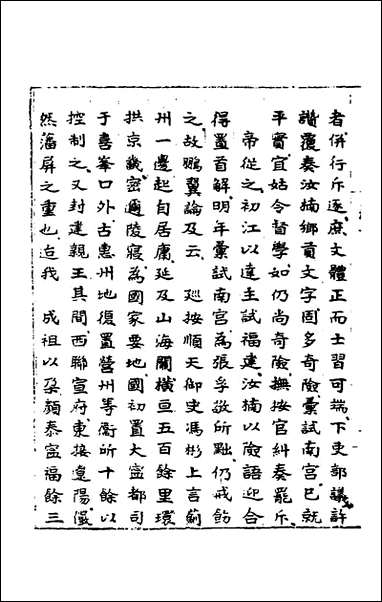 者併行斥逐庶文體正而士習可端下吏部議許
讚覆奏汝楠鄉貢文字固多奇險彙試南宮已就
平實宜姑令督學如仍尚奇險撫按官糾奏罷斥
帝從之初江以達主試福建汝楠以險語迎合
得置首解明年彙試南宮為張孚敬所黜仍戒飭
之故鵬翼論及云　廵按順天御史馮彬上言薊
州一邊起自居庸延及山海關橫亘五百餘里環
拱京畿密邇陵寢為國家要地國初置大寧都司
于喜峯口外古惠州地復置營州等衞所十餘以
控制之又封建親王其間西聯宣府東接遼陽儼
然藩屏之重也迨我　成祖以朶顏泰寧福餘三